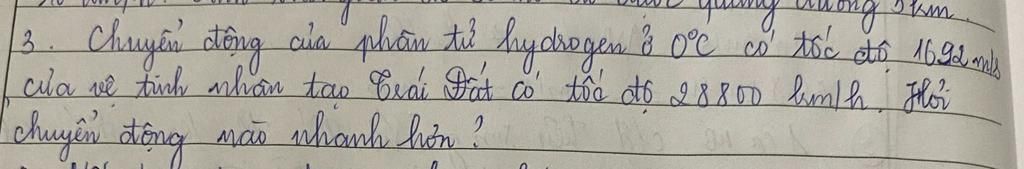 quãng đường 3km.
3. Chuyển động của phân tử hydrogen ở 0°C có tốc độ 1692 m/s
, của vệ tinh nhân tạo Trái Đất có tốc độ 28800 km/h. Hỏi
chuyển động nào nhanh hơn?